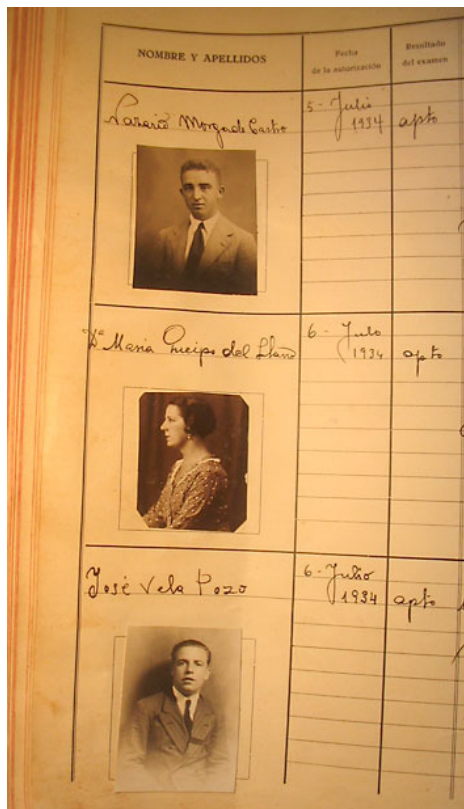 NOMBRE Y APELLIDOS
Fecha
de la autorización
Resultado
del examen
Morgado Castro
5 - Julio
1934
apto
Dª Maria Queipo del Llano
6 - Julo
1934
apto
José Vela Pozo
6 - Julio
1934
apto